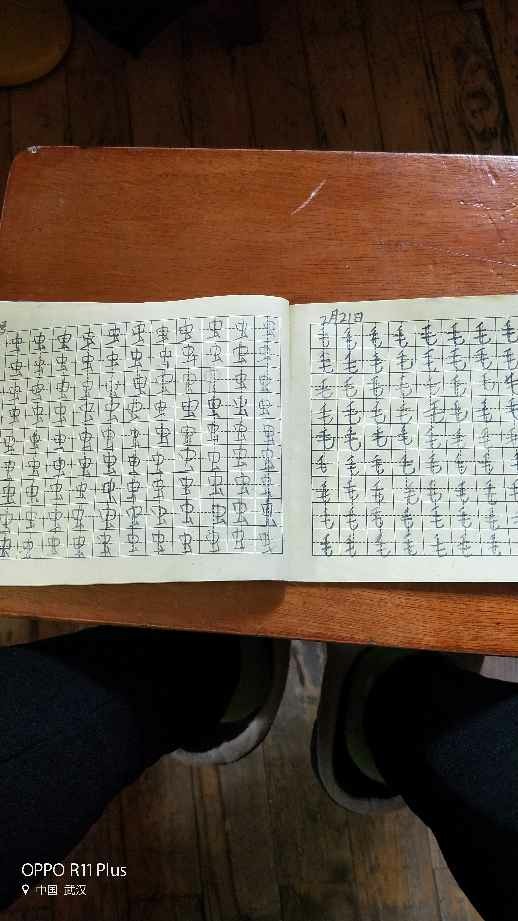 虫虫虫虫虫虫虫虫虫虫虫
虫虫虫虫虫虫虫虫虫虫虫
虫虫虫虫虫虫虫虫虫虫虫
虫虫虫虫虫虫虫虫虫虫虫
虫虫虫虫虫虫虫虫虫虫虫
虫虫虫虫虫虫虫虫虫虫虫
虫虫虫虫虫虫虫虫虫虫虫
虫虫虫虫虫虫虫虫虫虫虫
虫虫虫虫虫虫虫虫虫虫虫
2月21日
毛毛毛毛毛毛毛毛
毛毛毛毛毛毛毛毛
毛毛毛毛毛毛毛毛
毛毛毛毛毛毛毛毛
毛毛毛毛毛毛毛毛
毛毛毛毛毛毛毛毛
毛毛毛毛毛毛毛毛
毛毛毛毛毛毛毛毛
毛毛毛毛毛毛毛毛
OPPO R11 Plus
中国 武汉